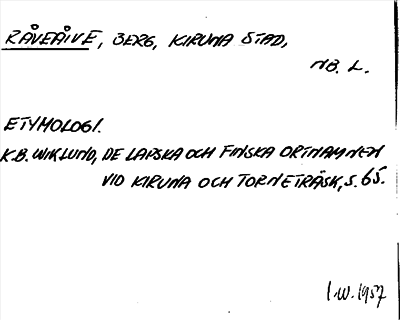 RÅVEÅIVE, BERG, KIRUNA STAD,
NB. L.
ETYMOLOGI.
K.B. WIKLUND, DE LAPSKA OCH FINSKA ORTNAMNEN
VID KIRUNA OCH TORNETRÄSK, S. 65.
I.W. 1957